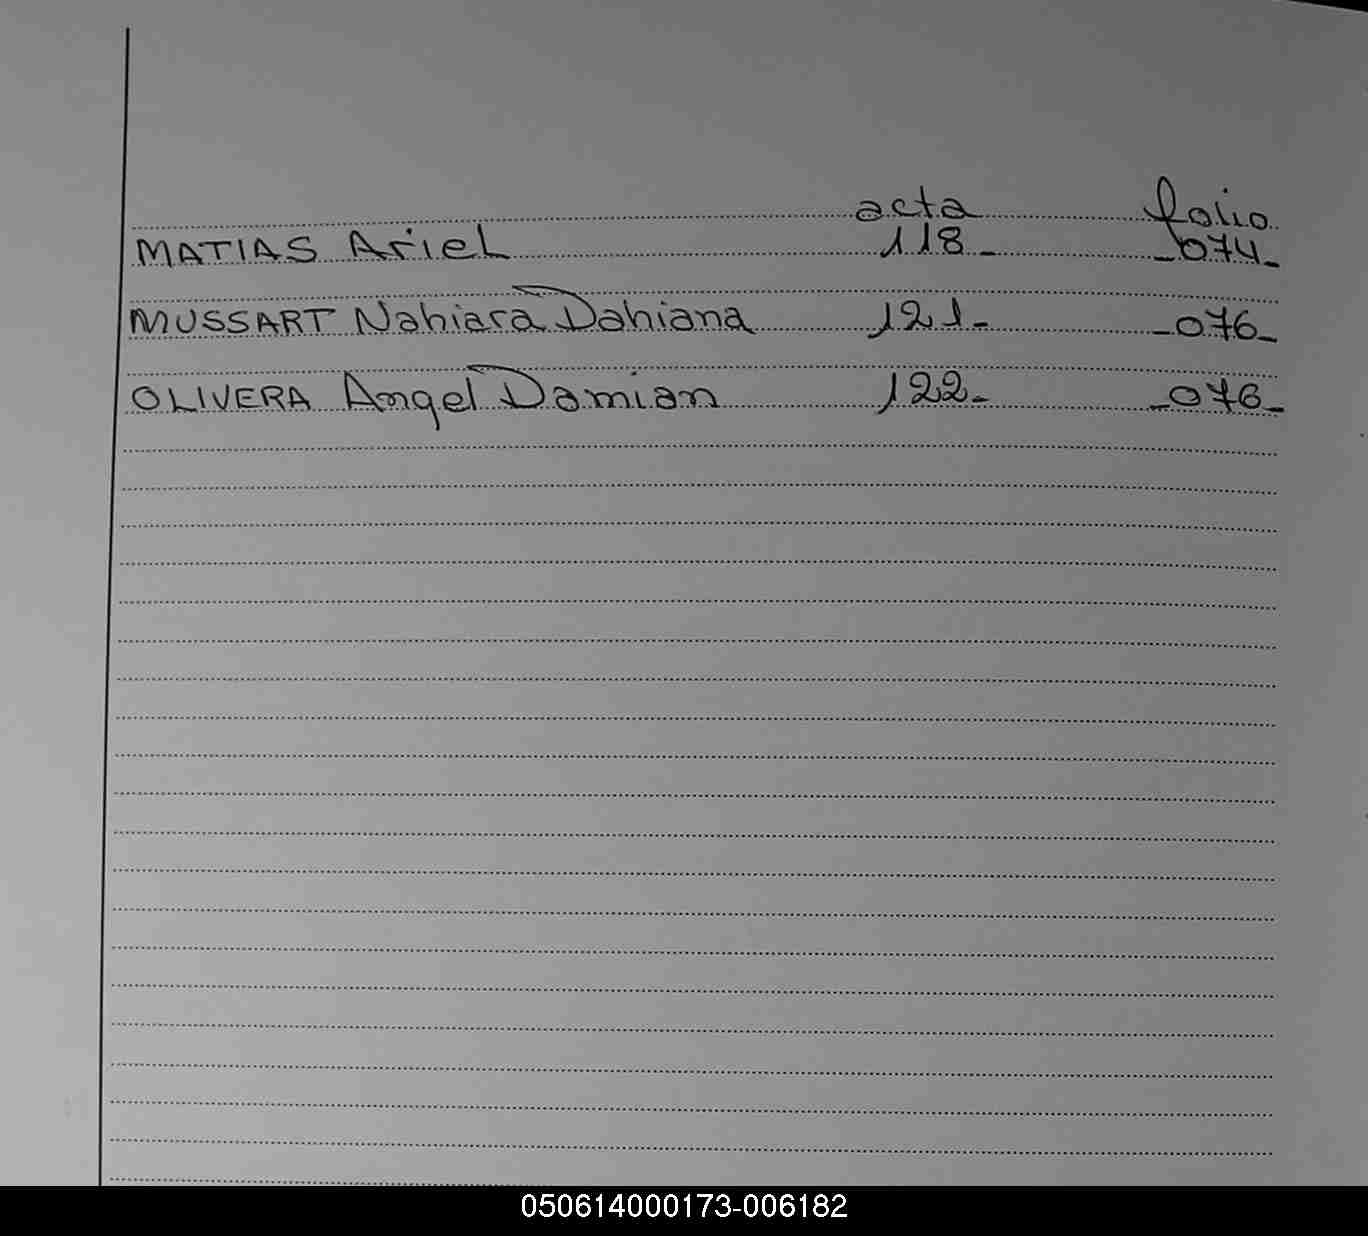 acta folio
MATIAS Ariel 118- -074-
MUSSART Nahiara Dahiana 121- -076-
OLIVERA Angel Damian 122- -076-
050614000173-006182